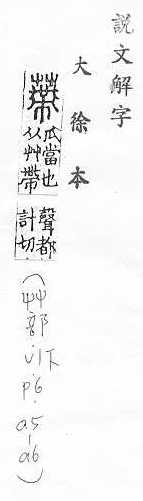 説文解字
大徐本
蔕
瓜當也
从艸帶
聲都
計切
(艸部.v1下
p6.
a5-a6)